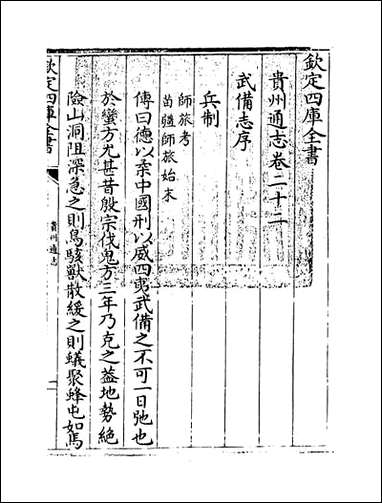 欽定四庫全書
貴州通志卷二十二
武備志序
兵制
師旅考
苗疆師旅始末
傳曰德以柔中國刑以威四夷武備之不可一日弛也
於蠻方尤甚昔殷宗伐鬼方三年乃克之葢地勢絶
險山洞阻深急之則鳥駭獸散緩之則蟻聚蜂屯如馬
欽定四庫全書
貴州通志
一